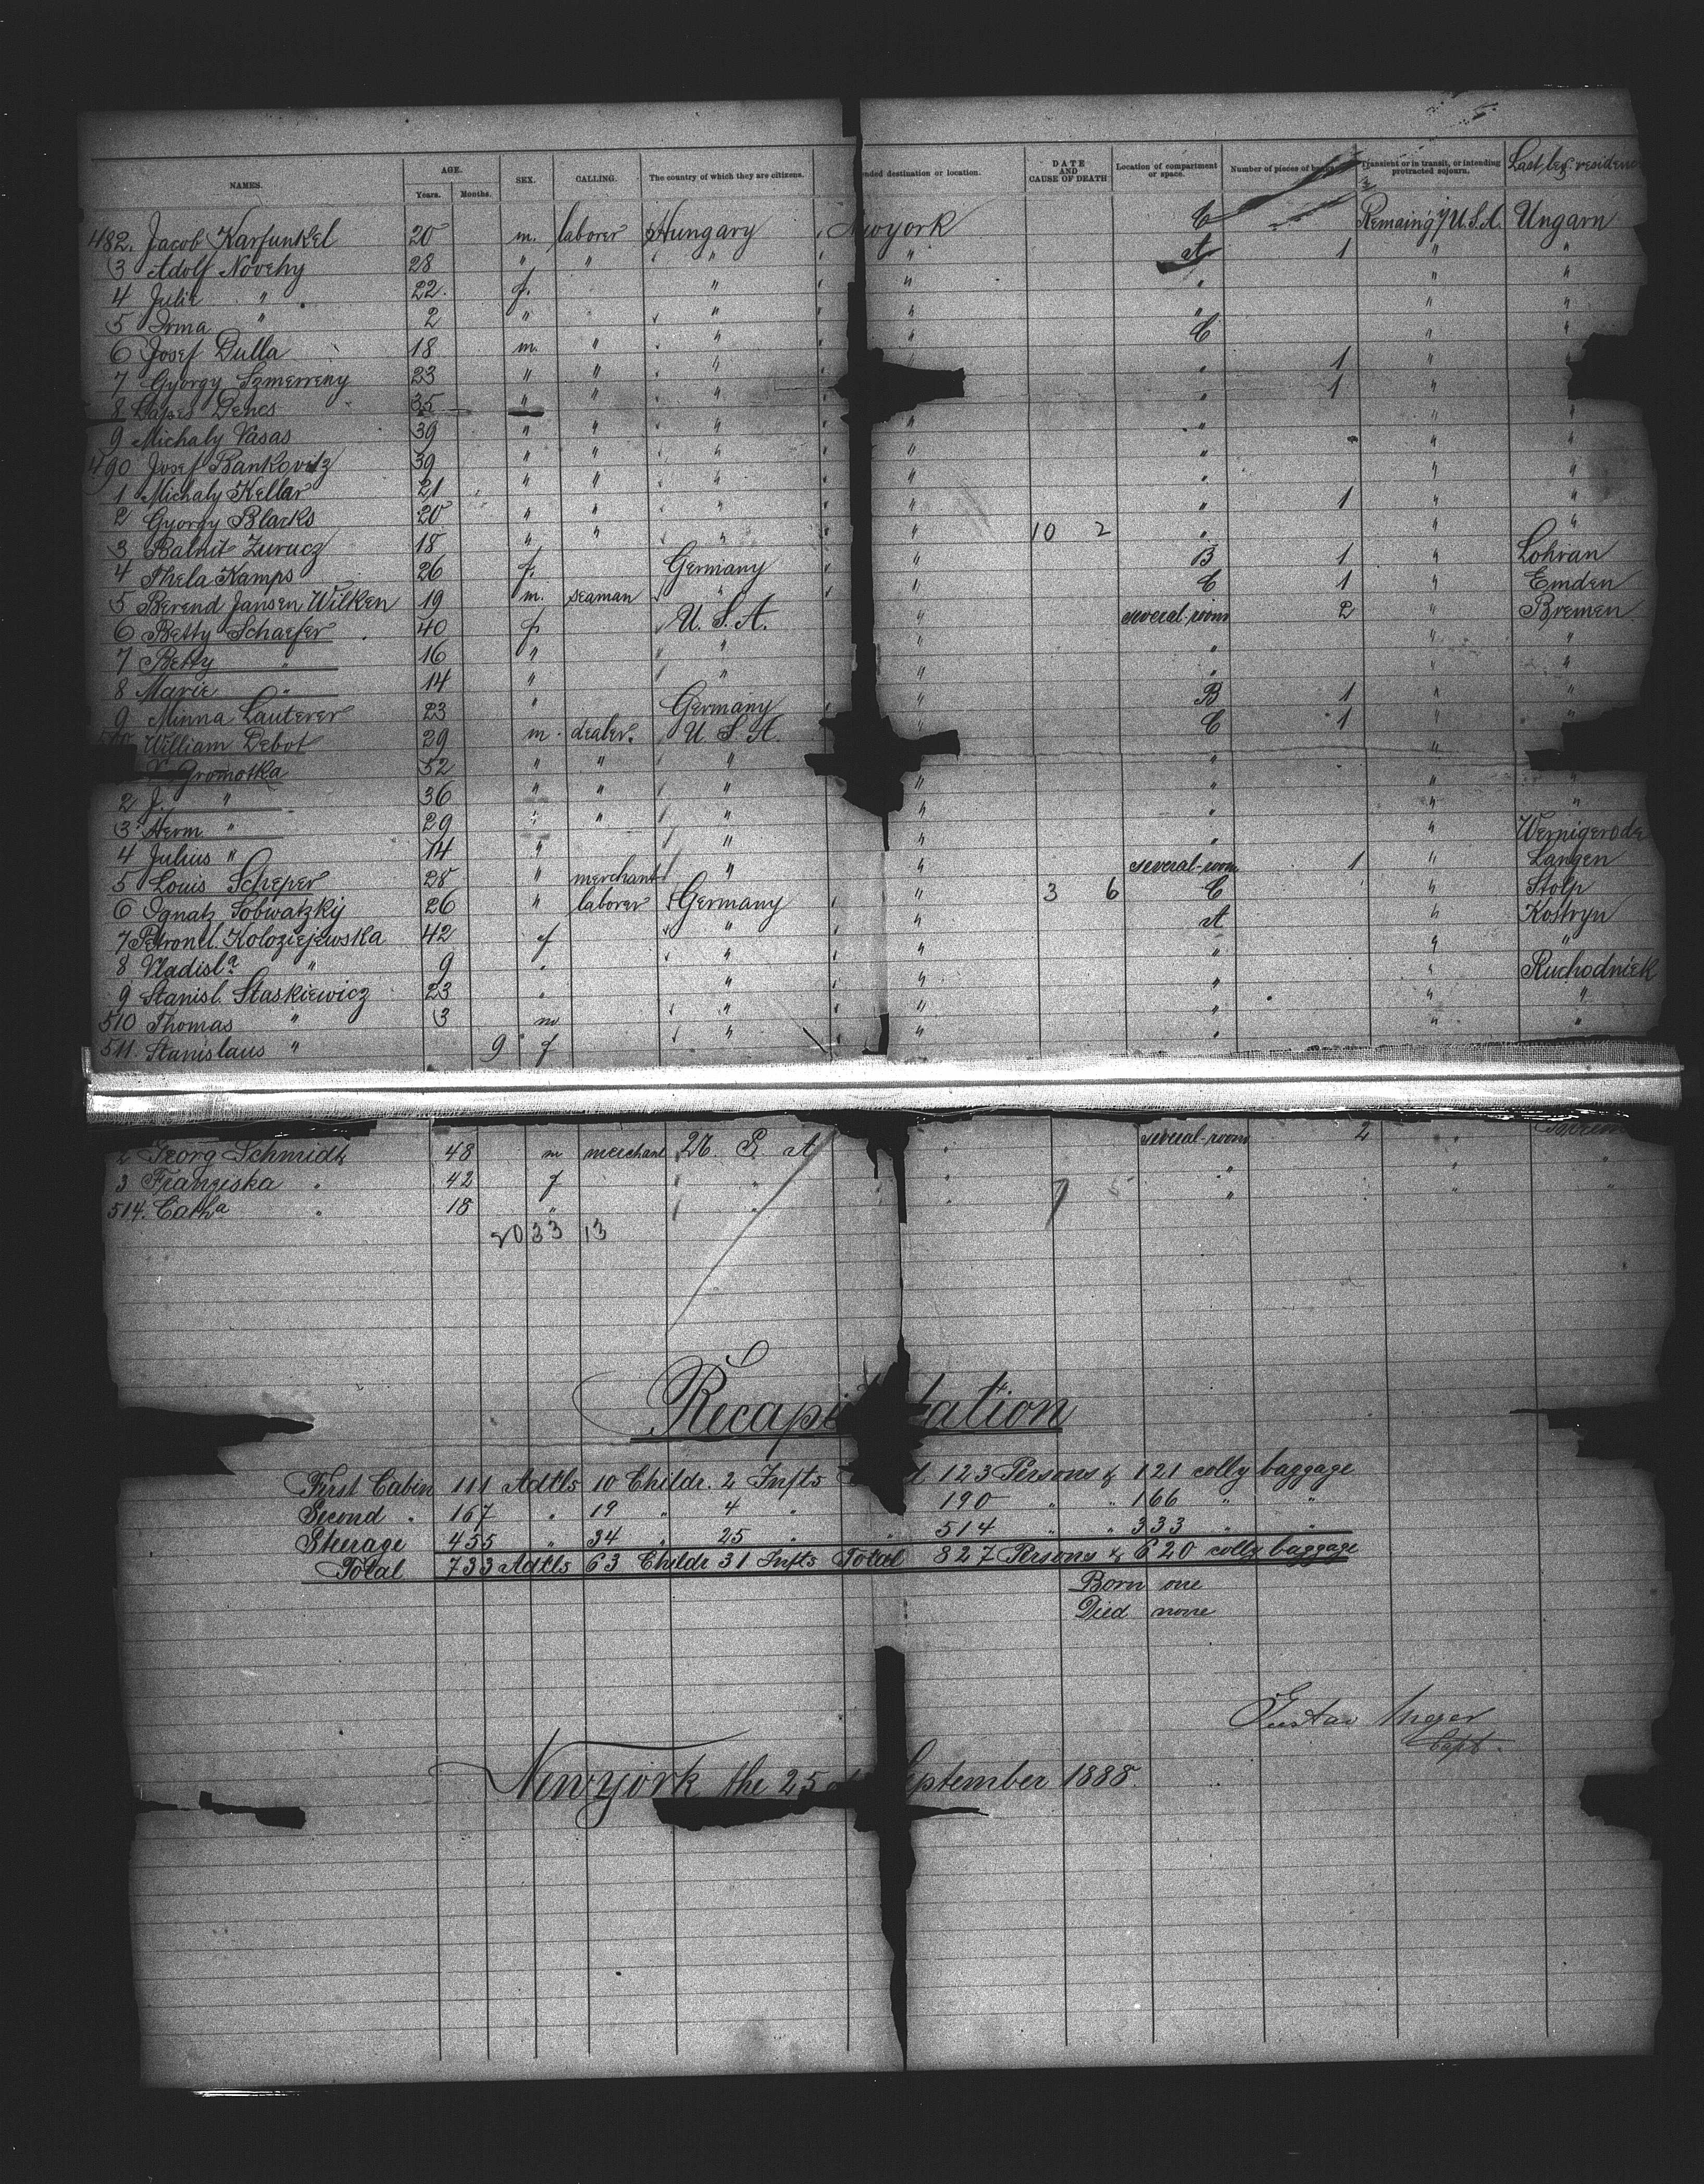 NAMES. AGE. Years. Months. SEX. CALLING. The country of which they are citizens. ended destination or location. DATE AND CAUSE OF DEATH Location of compartment or space. Number of pieces of Transient or in transit, or intending protracted sojourn. Last leg. residence
482. Jacob Karfunkel 20 m. laborer Hungary Newyork C Remaing i/U.S.A. Ungarn
3 Adolf Novehy 28 " " " " A 1 " "
4 Julie " 22 f. " " " " "
5 Irma " 2 " " " " " "
6 Josef Dulla 18 m. " " " C " "
7 Gyorgy Szmerreny 23 " " " " 1 "
8 Dencs 35 " " " " 1 "
9 Michaly Vasas 39 " " " " " " "
490 Josef Bankovitz 39 " " " " " " "
1 Michaly Kellar 21 " " " " " " "
2 Gyorgy Blacks 20 " " " " " 1 " "
3 Balnit Zurucz 18 " " " " 10 2 " " "
4 Thela Kamps 26 f. Germany " B 1 " Lohran
5 Berend Jansen Wilken 19 m. seaman " " C 1 " Emden
6 Betty Schaefer 40 f. U. S. A. " several-room 2 " Bremen
7 Betty " 16 " " " " " "
8 Marie " 14 " " " " " "
9 Minna Lauterer 23 " Germany " B 1 " "
William Debot 29 m. dealer. U. S. A. C 1 " "
Gromotka 52 " " " " "
2 J. " 36 " " " " " " "
3 Herm. " 29 " " " " " " "
4 Julius " 14 " " " " " Wernigerode
5 Louis Scheper 28 " merchant " " several-room 1 " Langen
6 Ignatz Sobwatzky 26 " laborer Germany " 3 6 C " Stolp
7 Petronel. Koloziejewska 42 f " " A " Kostryn
8 Vladisla " 9 " " " " " "
9 Stanisl. Staskiewicz 23 " " " " " Ruchodniek
510 Thomas " 3 m " " " " "
511. Stanislaus " 9 f " " " " "
2 Georg Schmidt 48 m merchant U. S. A " several-room 2 "
3 Franziska " 42 f " " " " "
514. Catha " 18 " " " " "
20 33 13
Recapi tation
First Cabin 111 Adtls 10 Childr. 2 Infts 123 Persons & 121 colly baggage
Second " 167 " 19 " 4 " 190 " " 166 " "
Steerage 455 " 34 " 25 " " 514 " " 333 " "
Total 733 Adtls 63 Childr 31 Infts Total 827 Persons & 620 colly baggage
Born one
Died none
Gustav Meyer
Capt.
Newyork the 25 September 1888.